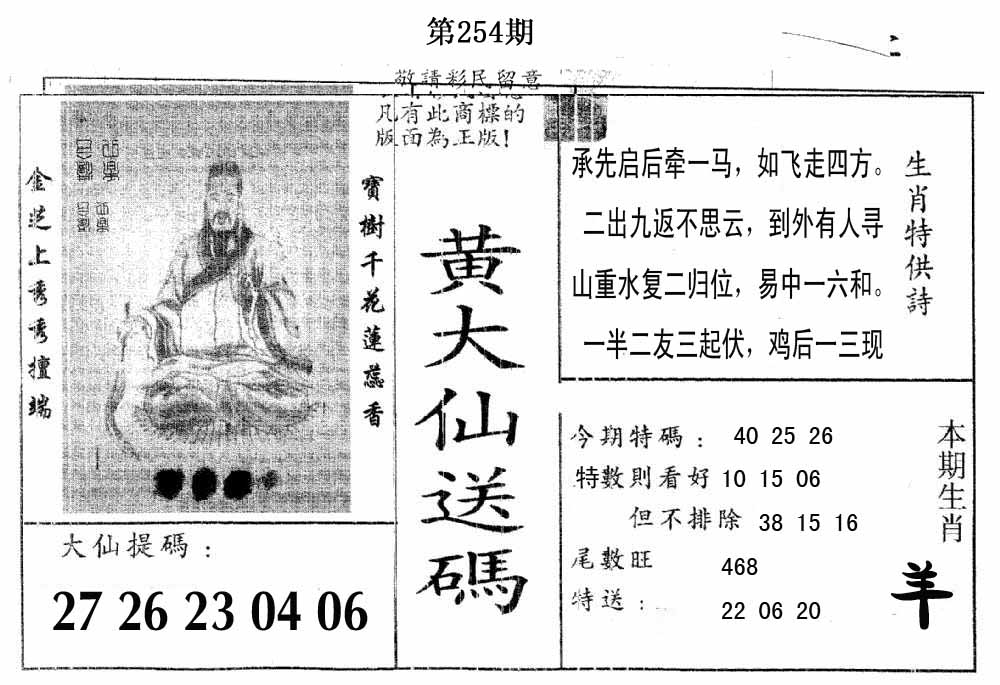 第254期
敬請彩民留意
凡有此商標的
版面為正版!
金芝上秀秀擅端
寶樹千花蓮蕊香
黃大仙送碼
承先启后牵一马，如飞走四方。
二出九返不思云，到外有人寻
山重水复二归位，易中一六和。
一半二友三起伏，鸡后一三现
生肖特供詩
大仙提碼：
27 26 23 04 06
今期特碼： 40 25 26
特數則看好 10 15 06
但不排除 38 15 16
尾數旺 468
特送： 22 06 20
本期生肖
羊